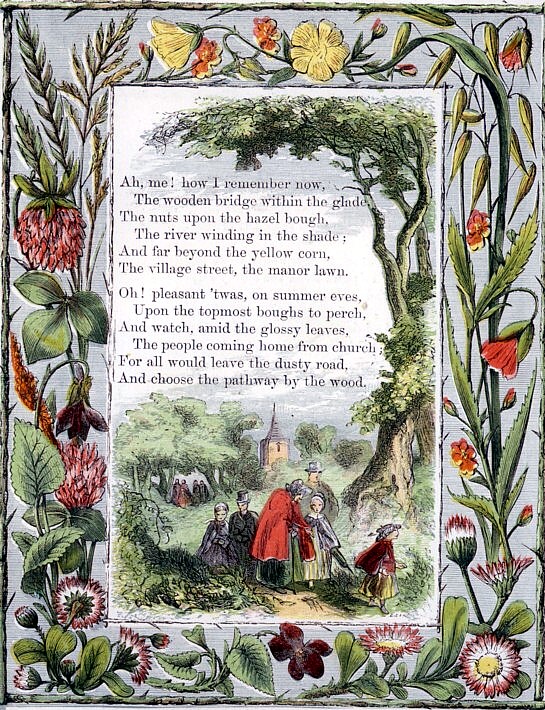 Ah, me! how I remember now,
The wooden bridge within the glade,
The nuts upon the hazel bough,
The river winding in the shade;
And far beyond the yellow corn,
The village street, the manor lawn.
Oh! pleasant 'twas, on summer eves,
Upon the topmost boughs to perch,
And watch, amid the glossy leaves,
The people coming home from church;
For all would leave the dusty road,
And choose the pathway by the wood.